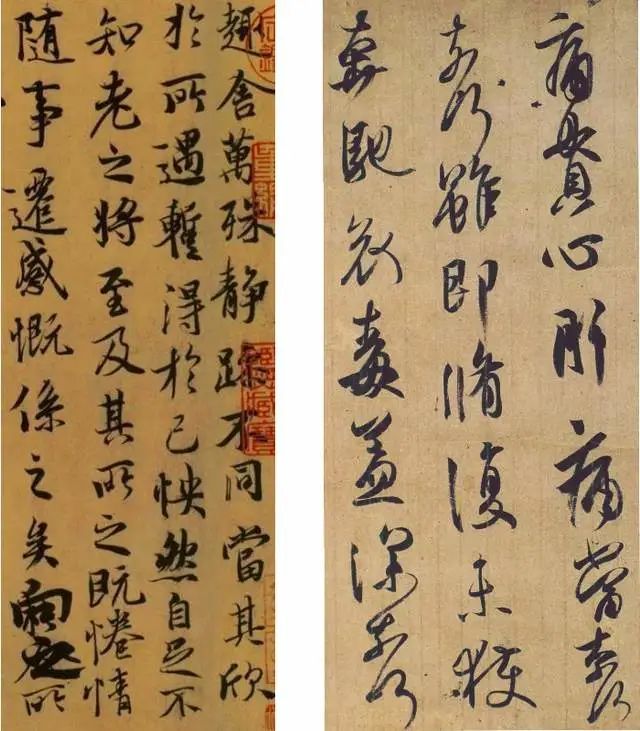 趣舍萬殊静躁不同當其欣
於所遇暫得於己怏然自足不
知老之將至及其所之既惓情
隨事遷感慨係之矣向之所
痛貫心肝痛當奈何
奈何雖即脩復未獲
奔馳哀毒益深奈何